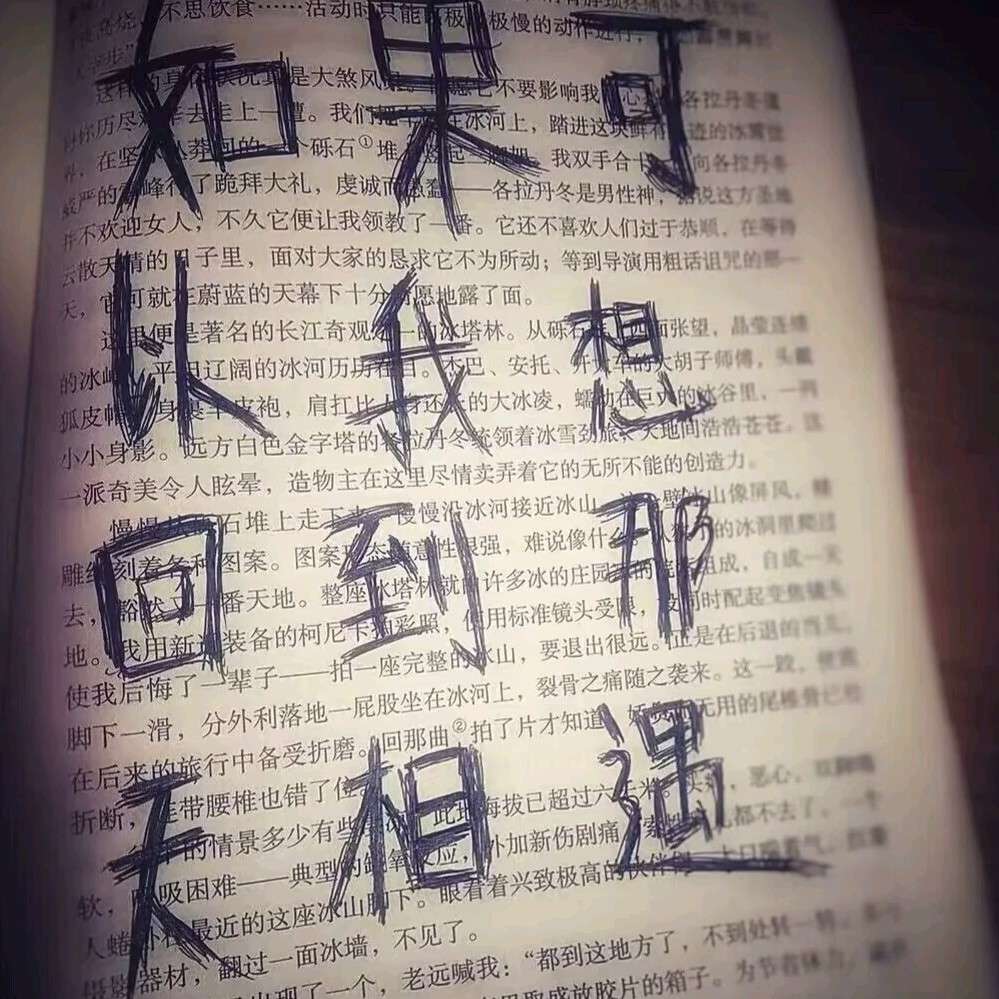 如果可
以我想
回到那
天相遇
不思饮食……活动时只能 极慢的动作进行，
是大煞风 不要影响我 各拉丹冬
历尽 去走上一遭。我们 在冰河上，踏进这块鲜有 迹的冰雪世
界，在坚 莽 的一个砾石①堆 我双手合 向各拉丹冬
威严的 峰行了跪拜大礼，虔诚而愚蠢——各拉丹冬是男性神，据说这方圣地
并不欢迎女人，不久它便让我领教了一番。它还不喜欢人们过于恭顺，在等待
云散天晴的日子里，面对大家的恳求它不为所动；等到导演用粗话诅咒的那一
天，它可就在蔚蓝的天幕下十分 愿地露了面。
这里便是著名的长江奇观之一的冰塔林。从砾石 四面张望，晶莹连绵
的冰峰 平坦辽阔的冰河历历在目。杰巴、安托、开大车的大胡子师傅，头戴
狐皮帽 身裹羊皮袍，肩扛比 身还 的大冰凌，蠕动在巨大的冰谷里，一列
小小身影。远方白色金字塔的各拉丹冬统领着冰雪劲旅，天地间浩浩苍苍。这
一派奇美令人眩晕，造物主在这里尽情卖弄着它的无所不能的创造力。
慢慢 石堆上走下来，慢慢沿冰河接近冰山。 壁冰山像屏风，雕
雕 刻着各种图案。图案 态随意性很强，难说像什么 的冰洞里爬过
去，豁然又一番天地。整座冰塔林就 许多冰的庄园 组成，自成一天
地。我用新 装备的柯尼卡拍彩照，使用标准镜头受限，没同时配起变焦镜头
使我后悔了一辈子——拍一座完整的冰山，要退出很远。正是在后退的当儿，
脚下一滑，分外利落地一屁股坐在冰河上，裂骨之痛随之袭来。这一跤，使我
在后来的旅行中备受折磨。回那曲②拍了片才知道， 无用的尾椎骨已经
折断，连带腰椎也错了位
的情景多少有些 此地海拔已超过六千米。 恶心，双脚
软，呼吸困难——典型的缺氧反应，外加新伤剧痛， 都不去了。一个
人蜷 在最近的这座冰山脚下。眼看着兴致极高的伙伴们 大口喘着气，
摄影器材，翻过一面冰墙，不见了。
出现了一个，老远喊我：“都到这地方了，不到处转一转，
取盛放胶片的箱子。为节省体力，